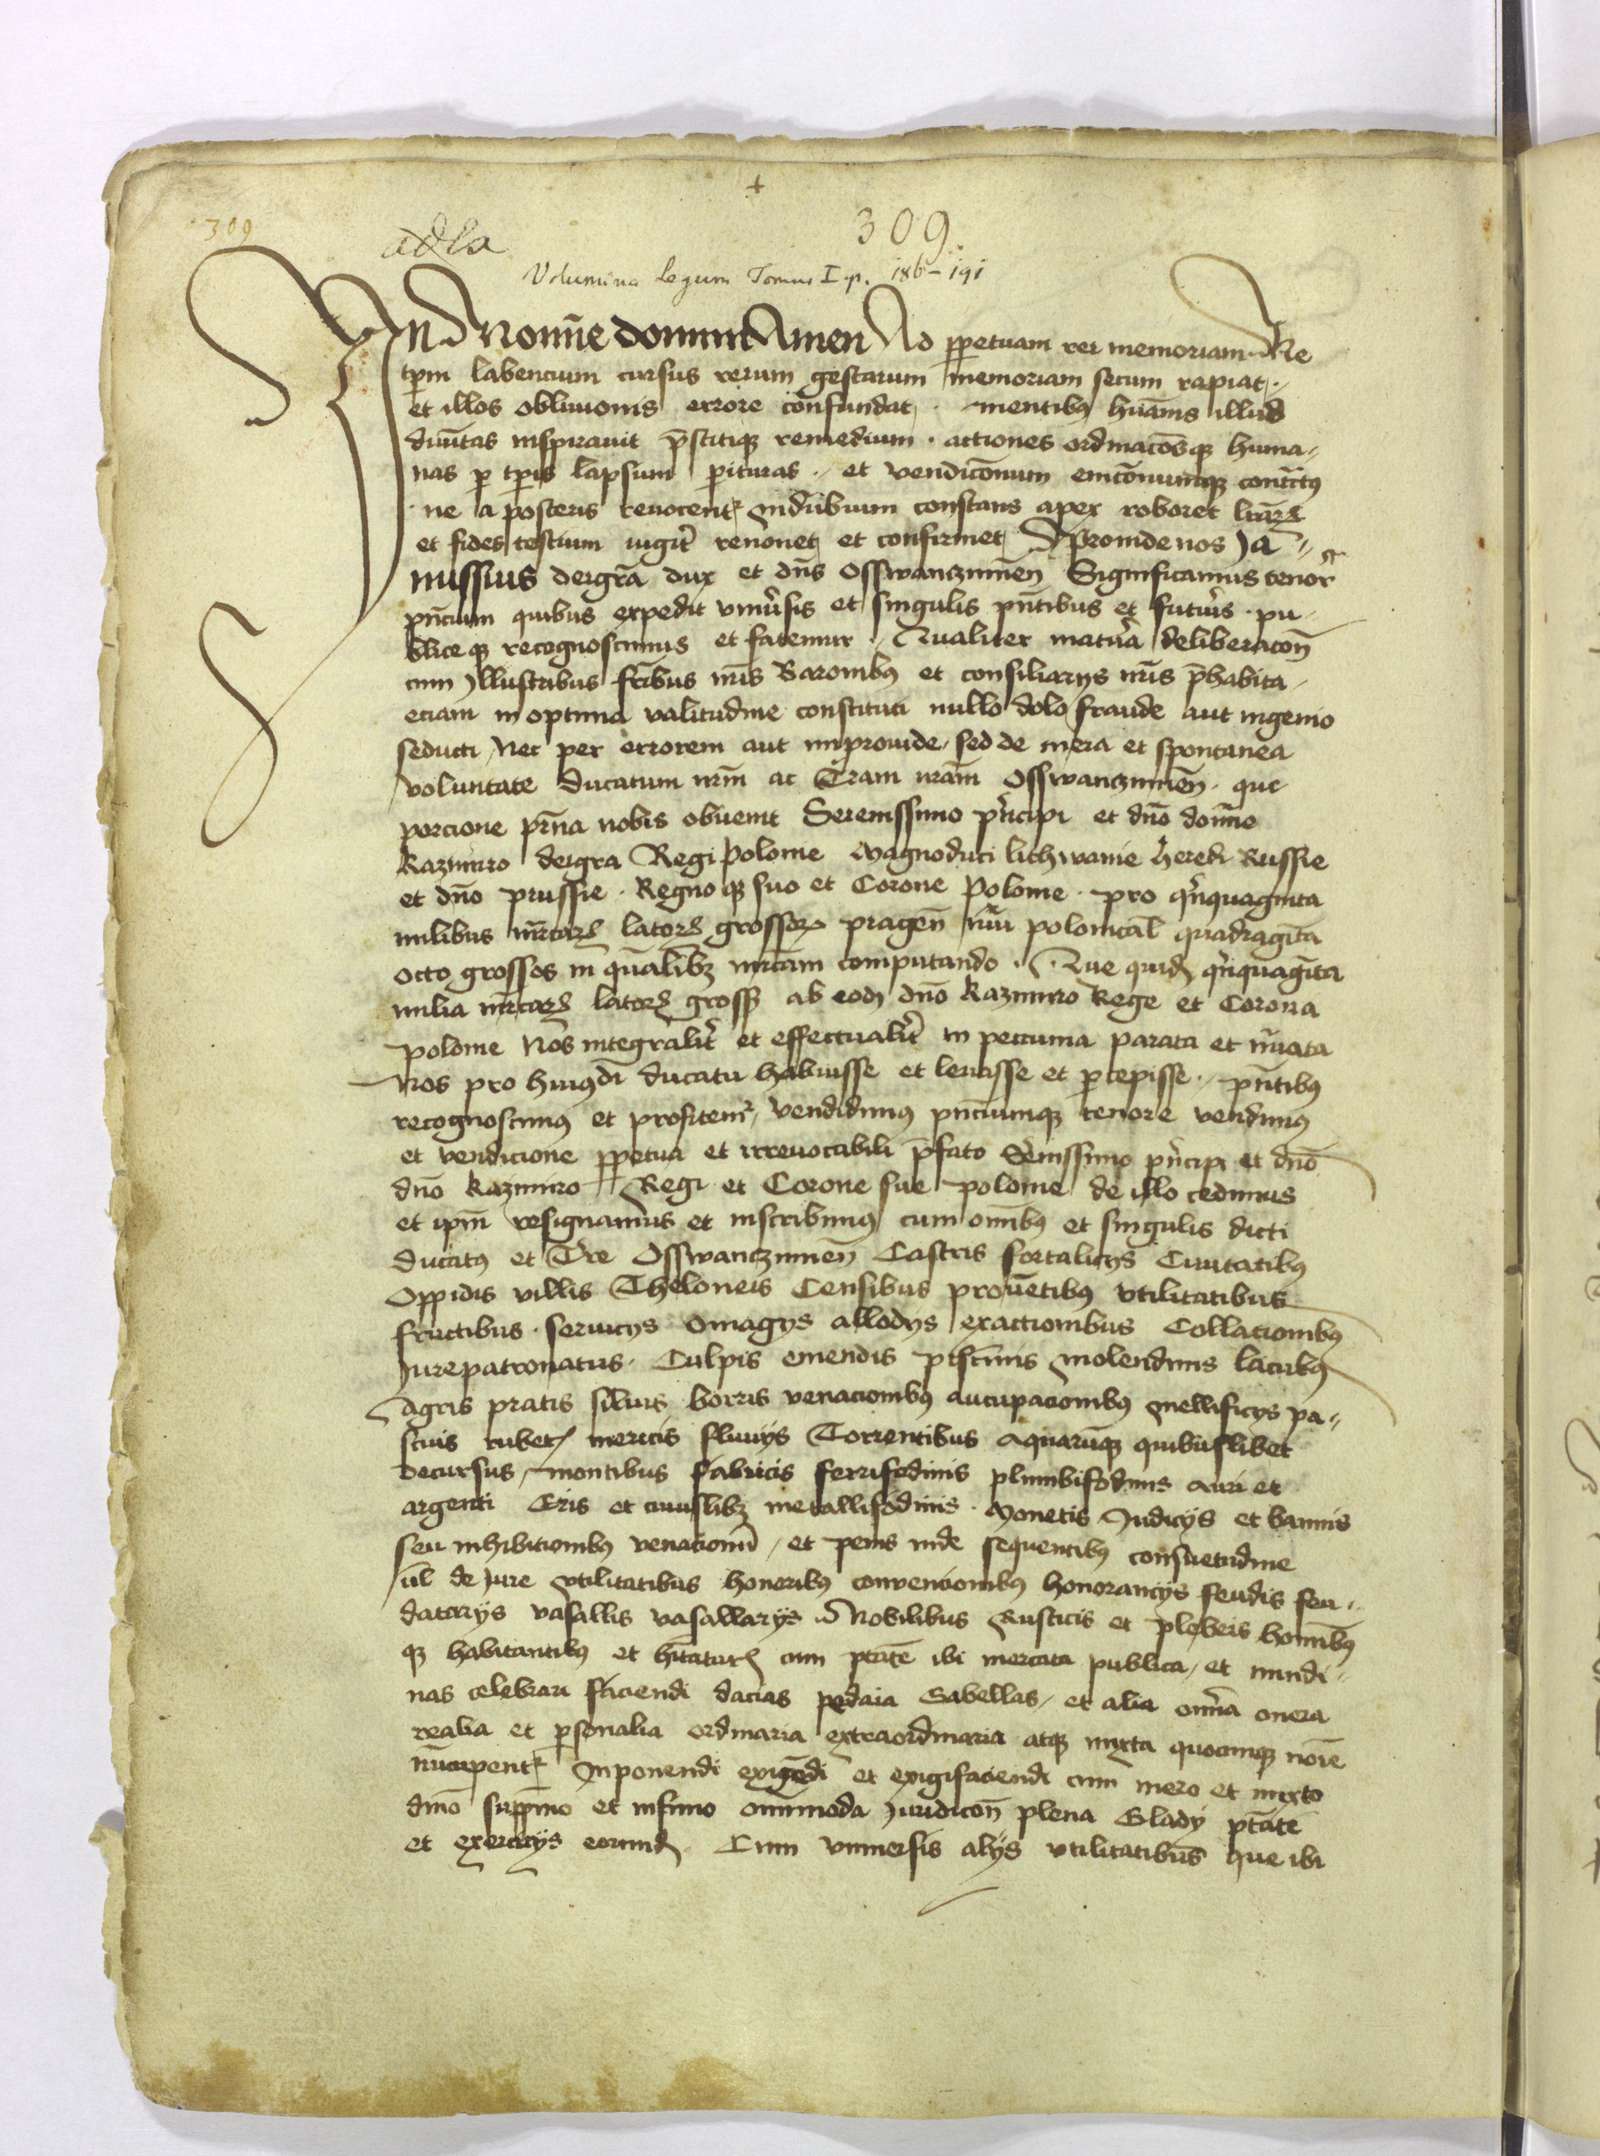 +
309
309.
adla
Volumina Legum Tomus I p. 186–191
In Nomine domini Amen Ad ppetuam rei memoriam Ne
tpm labencium cursus rerum gestarum memoriam secum rapiat
et illos oblivionis errore confundat mentibꝫ hūanis illud
diuītas inspirauit p̄stitiqꝫ remedium actiones ordinacōsqꝫ huma-
nas p tpis lapsum pituras et vendicōnum emcōnumqꝫ contractꝫ
ne a posteris reuocent indubium constans apex roboret lrāꝝ
et fides testium iugit̄ renouet et confirmet Proinde nos Ja-
nussius deigrā dux et dn̄s Osswanczimen̄ Significamus tenor
pn̄cium quibus expedit vniūsis et singulis pn̄tibus et futuris pu-
blice qꝫ recognoscimus et fatemur Qualiter matura deliberacōn
cum Illustribus frībus nr̄is Baronibꝫ et consiliarys nr̄is p̄habita
eciam in optima valitudine constituti nullo dolo fraude aut ingenio
seducti Nec per errorem aut improuide sed de mera et spontanea
voluntate ducatum nrm̄ ac Tram nram̄ Osswanczimen̄ que
porcione pr̄na nobis obuenit Serenissimo pncipi et dn̄o domīo
Kazimiro deigra Regi Polonie Magnoduci lithwanie heredi Russie
et dn̄o prussie Regno qꝫ suo et Corone Polonie pro qn̄quaginta
milibus mrcarꝝ latorꝝ grossorꝝ pragen̄ nūi polonical quadraginta
octo grossos in qualibꝫ mrcam computando Que quidꝫ qn̄quagīta
milia mrcarꝝ latorꝝ gross ab eodꝫ dn̄o Kazimiro Rege et Corona
polonie Nos integralit̄ et effectualit̄ in peccunia parata et nūata
Nos pro huiꝫdi ducatu habuisse et leuasse et pcepisse pn̄tibꝫ
recognoscimꝫ et profitemᷣ vendidimꝫ pn̄ciumqꝫ tenore vendimꝫ
et vendicione ppetua et irreuocabili p̄fato Sēnissimo pncipi et dn̄o
dn̄o Kazimiro Regi et Corone sue polonie de illo cedimus
et ipm̄ resignamus et inscribimꝫ cum omībꝫ et singulis dicti
ducatꝫ et Tre Osswanczimen̄ Castris fortalicys Ciuitatibꝫ
Oppidis villis Theloneis Censibus prouētibꝫ vtilitatibus
fructibus seruicys omagys allodys exactionibus Collacionibꝫ
Jurepatronatus Culpis emendis piscinis molendinis lacubꝫ
Agris pratis siluis borris venacionibꝫ aucupacionibꝫ mellificys pa-
scuis rubetꝫ mericis fluuys Torrentibus aquarūqꝫ quibuslibet
decursus montibus fabricis ferrifodinis plumbifodinis auri et
argenti Eris et cuiuslibꝫ metallifodinis Monetis Judicys et bannis
seu inhibicionibꝫ venacionū et penis inde sequentibꝫ consuetudine
ūl de Jure vtilitatibus honoribꝫ conuencionibꝫ honorancys feudis feu-
datarys vasallis vasallarys Nobilibus Rusticis et plebeis homībꝫ
qꝫ habitantibꝫ et hītaturꝫ cum ptāte ibi mercata publica et nundi-
nas celebrari faciendi dacias pedaia Gabellas et alia omīa onera
realia et psonalia ordinaria extraordinaria atqꝫ mixta quocunqꝫ noīe
nūcupentᷣ Inponendi exigēdi et exigifaciendi cum mero et mixto
dnīo suppmo et infimo omnimoda Juridicōn plena Glady ptāte
et exercicys eorundꝫ Cum vniuersis alys vtilitatibus que ibi